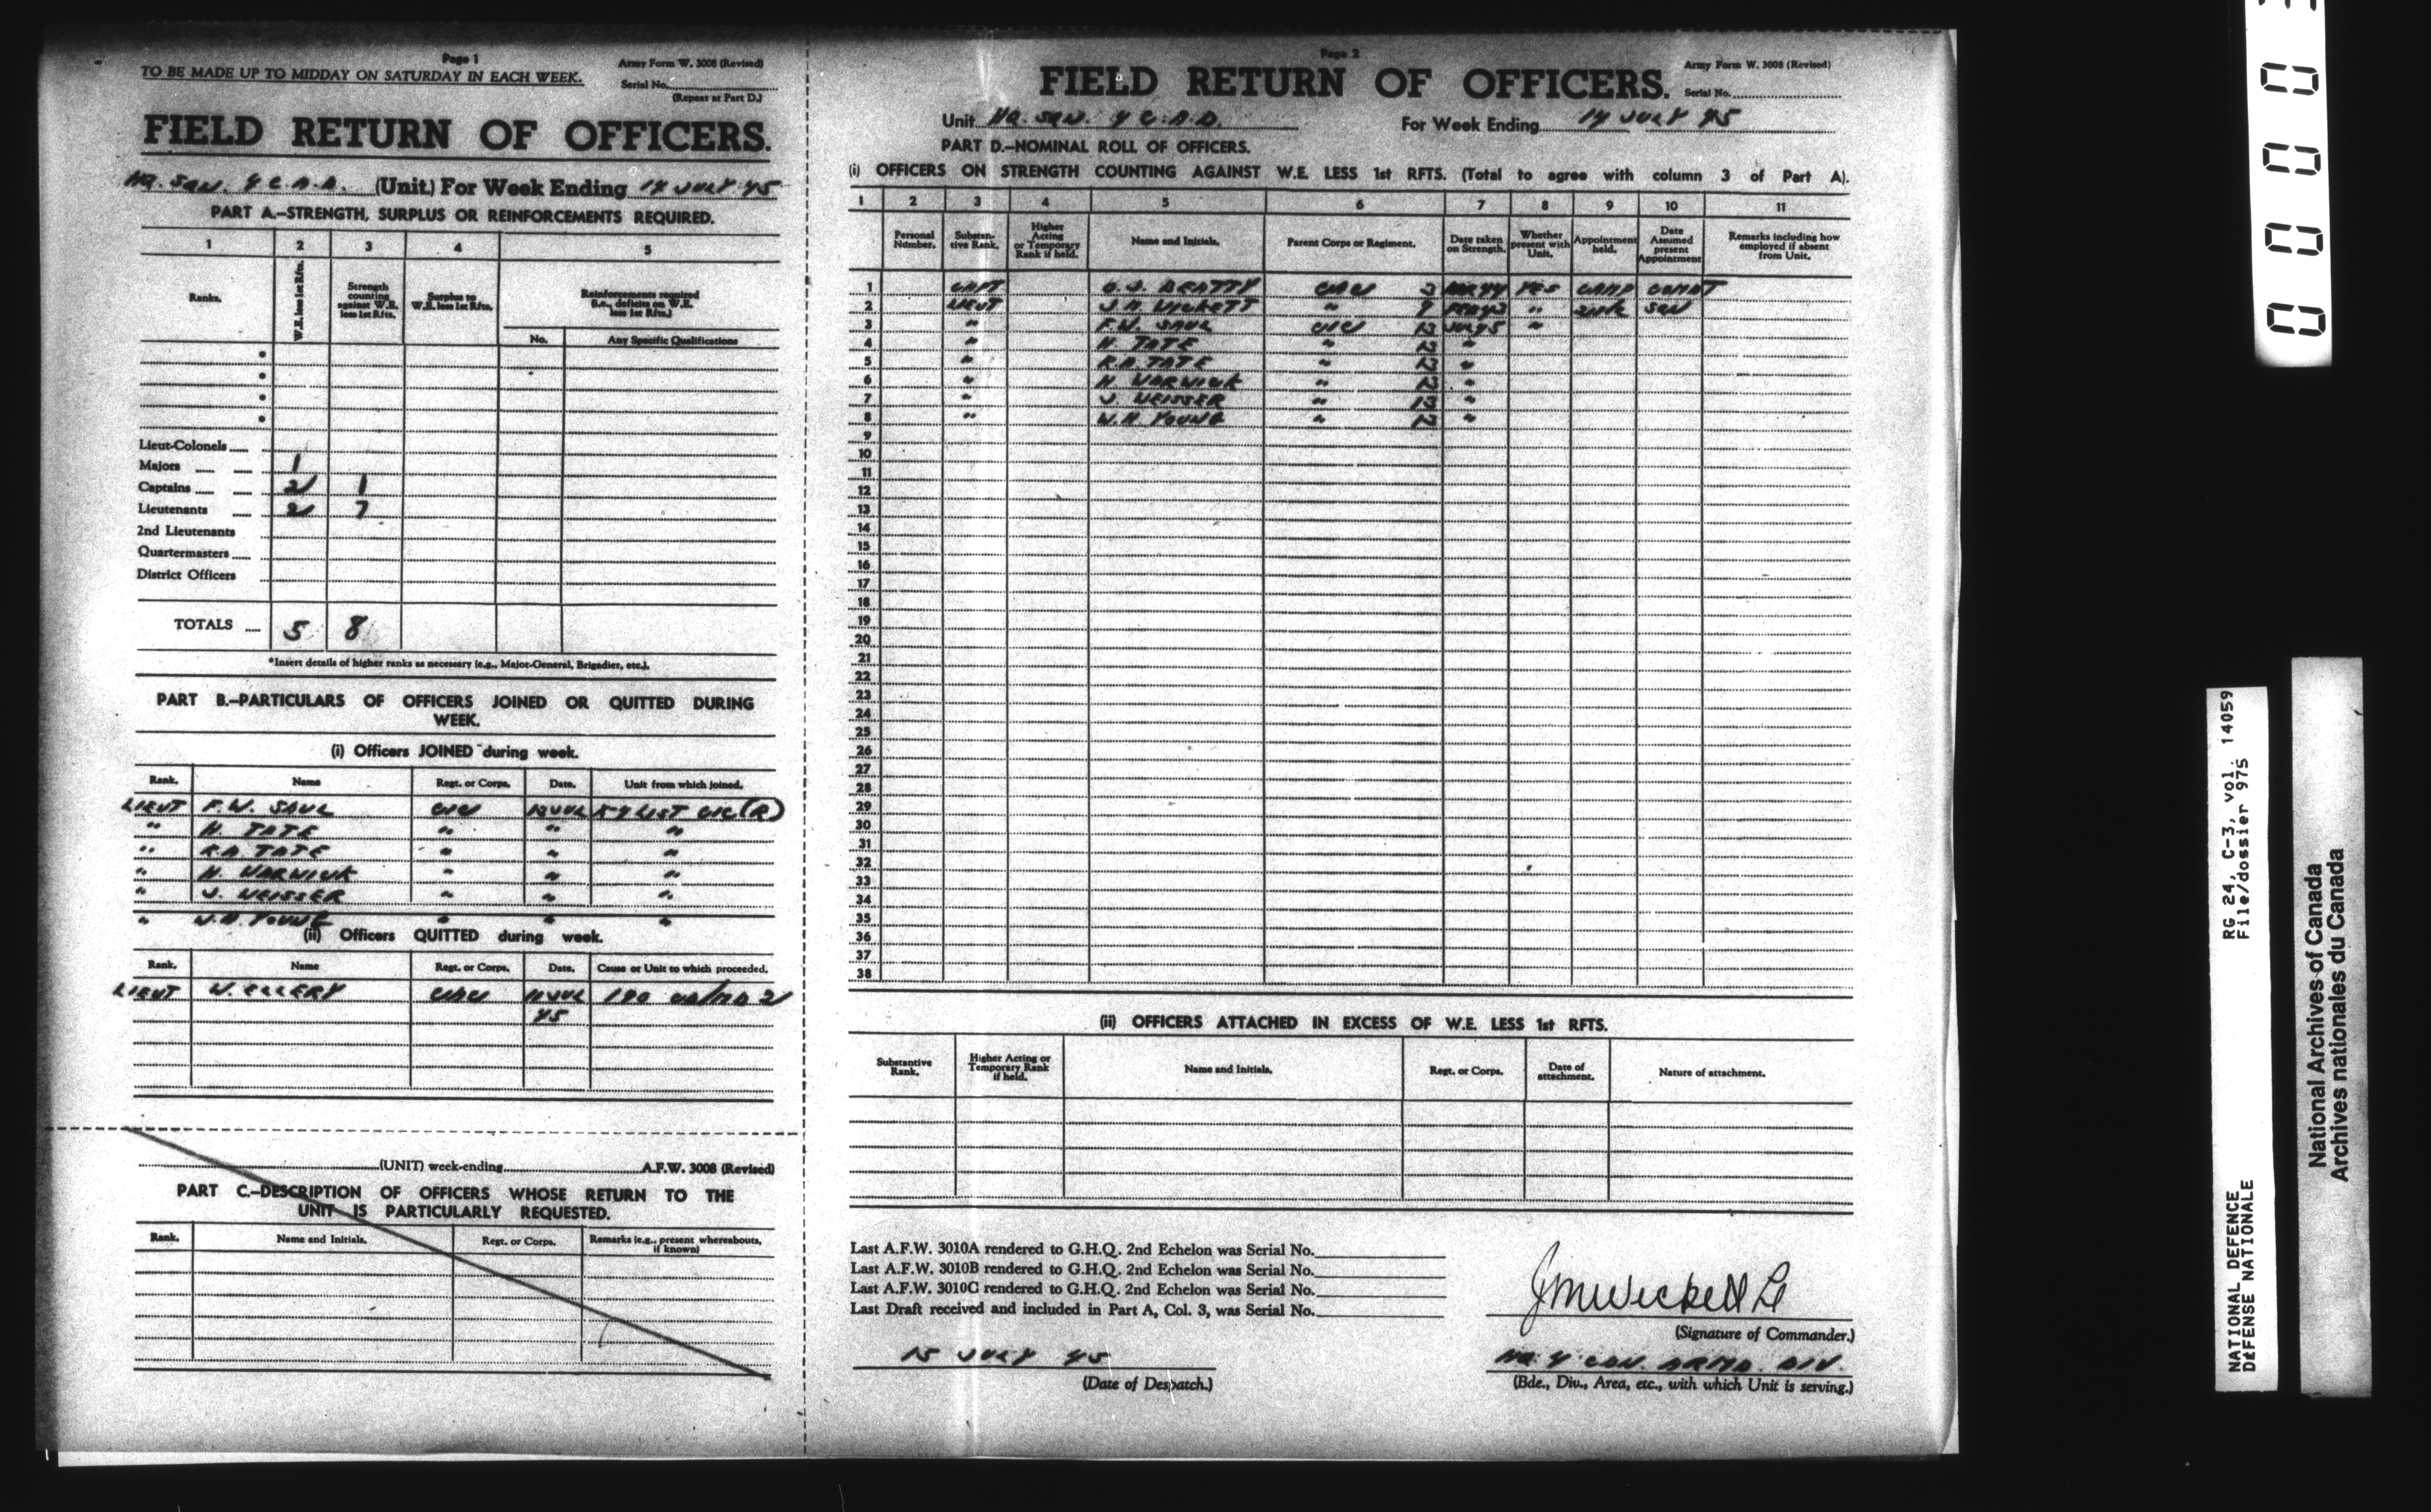 Page 1
TO BE MADE UP TO MIDDAY ON SATURDAY IN EACH WEEK.
Army Form W. 3008 (Revised)
Serial No.
(Repeat at Part D.)
FIELD RETURN OF OFFICERS.
HQ. SQN. 4 C.A.D. (Unit.) For Week Ending 14 JULY 45
PART A.—STRENGTH, SURPLUS OR REINFORCEMENTS REQUIRED.
1 2 3 4 5
Ranks.
W.E. less 1st Rfts.
Strength counting against W.E. less 1st Rfts.
Surplus to W.E. less 1st Rfts.
Reinforcements required (i.e., deficits on W.E. less 1st Rfts.)
No. Any Specific Qualifications
*
*
*
*
Lieut-Colonels
Majors 1
Captains 2 1
Lieutenants 2 7
2nd Lieutenants
Quartermasters
District Officers
TOTALS 5 8
*Insert details of higher ranks as necessary (e.g., Major-General, Brigadier, etc.).
PART B.—PARTICULARS OF OFFICERS JOINED OR QUITTED DURING
WEEK.
(i) Officers JOINED during week.
Rank. Name Regt. or Corps. Date. Unit from which joined.
LIEUT F.W. SAUL CIC 13 JUL X4 LIST CIC (R)
" H. TATE " " "
" R.A. TATE " " "
" H. WARWICK " " "
" J. WEISSER " " "
" W.H. YOUNG " " "
(ii) Officers QUITTED during week.
Rank. Name Regt. or Corps. Date. Cause or Unit to which proceeded.
LIEUT W. ELLERY CAC 11 JUL
45
(UNIT) week-ending A.F.W. 3008 (Revised)
PART C.—DESCRIPTION OF OFFICERS WHOSE RETURN TO THE
UNIT IS PARTICULARLY REQUESTED.
Rank. Name and Initials. Regt. or Corps. Remarks (e.g., present whereabouts, if known)
Page 2
FIELD RETURN OF OFFICERS.
Army Form W. 3008 (Revised)
Serial No.
Unit HQ. SQN. 4 C.A.D. For Week Ending 14 JULY 45
PART D.—NOMINAL ROLL OF OFFICERS.
(i) OFFICERS ON STRENGTH COUNTING AGAINST W.E. LESS 1st RFTS. (Total to agree with column 3 of Part A).
1 2 3 4 5 6 7 8 9 10 11
Personal Number.
Substantive Rank.
Higher Acting or Temporary Rank if held.
Name and Initials.
Parent Corps or Regiment.
Date taken on Strength.
Whether present with Unit.
Appointment held.
Date Assumed present Appointment
Remarks including how employed if absent from Unit.
1 CAPT BEATTY CAC YES CAMP COMDT
2 LIEUT J.M. WICKETT " " SQN
3 " F.W. SAUL CIC 13 JUL 45 "
4 " H. TATE " 13 "
5 " R.A. TATE " 13 "
6 " H. WARWICK " 13 "
7 " J. WEISSER " 13 "
8 " W.H. YOUNG " 13 "
9
10
11
12
13
14
15
16
17
18
19
20
21
22
23
24
25
26
27
28
29
30
31
32
33
34
35
36
37
38
(ii) OFFICERS ATTACHED IN EXCESS OF W.E. LESS 1st RFTS.
Substantive Rank.
Higher Acting or Temporary Rank if held.
Name and Initials.
Regt. or Corps.
Date of attachment.
Nature of attachment.
Last A.F.W. 3010A rendered to G.H.Q. 2nd Echelon was Serial No.
Last A.F.W. 3010B rendered to G.H.Q. 2nd Echelon was Serial No.
Last A.F.W. 3010C rendered to G.H.Q. 2nd Echelon was Serial No.
Last Draft received and included in Part A, Col. 3, was Serial No.
JMWickett Lt
(Signature of Commander.)
15 JULY 45
(Date of Despatch.)
HQ 4 CDN. ARMD. DIV.
(Bde., Div., Area, etc., with which Unit is serving.)
NATIONAL DEFENCE RG 24, C-3, vol. 14059
DÉFENSE NATIONALE File/dossier 975
National Archives of Canada
Archives nationales du Canada